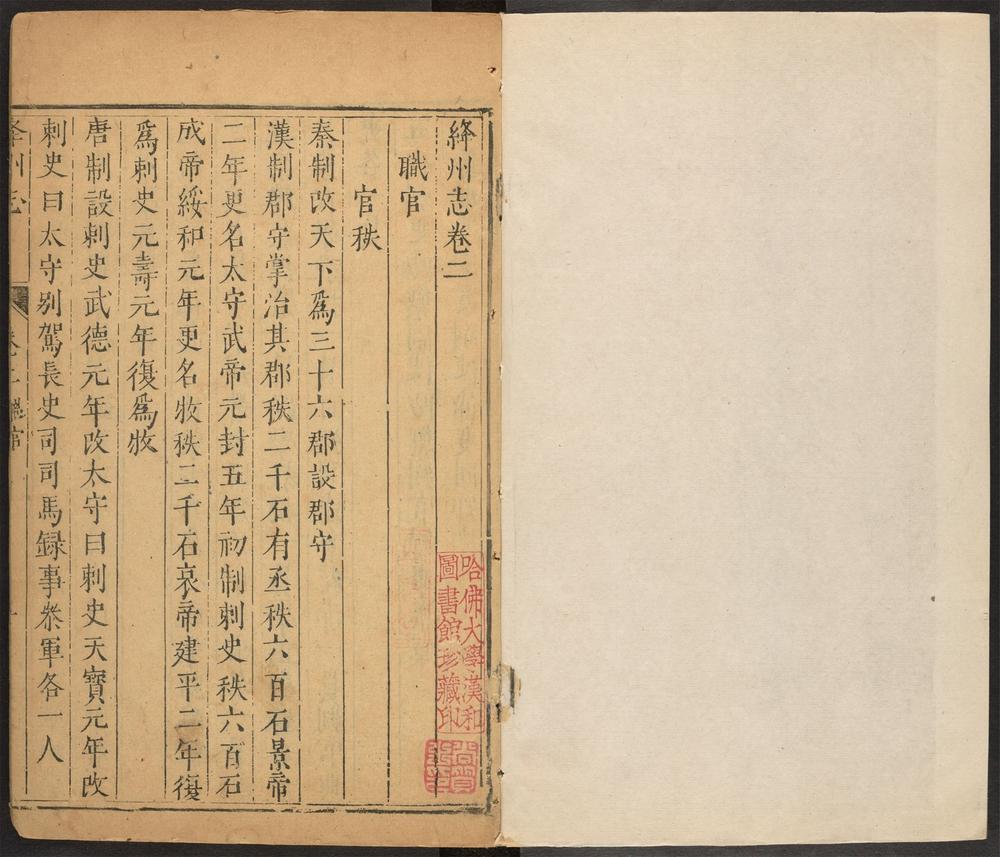 絳州志卷二
職官
官秩
秦制改天下爲三十六郡設郡守
漢制郡守掌治其郡秩二千石有丞秩六百石景帝
二年更名太守武帝元封五年初制刺史秩六百石
成帝綏和元年更名牧秩二千石哀帝建平二年復
爲刺史元壽元年復爲牧
唐制設刺史武德元年改太守曰刺史天寶元年改
刺史曰太守别駕長史司司馬録事叅軍各一人
絳州志
卷二職官
哈佛大學漢和
圖書館珍藏印